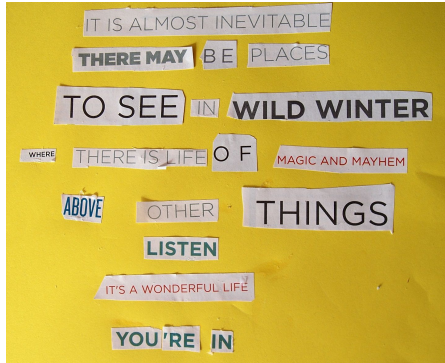 IT IS ALMOST INEVITABLE
THERE MAY BE PLACES
TO SEE IN WILD WINTER
WHERE THERE IS LIFE OF MAGIC AND MAYHEM
ABOVE OTHER THINGS
LISTEN
IT'S A WONDERFUL LIFE
YOU'RE IN